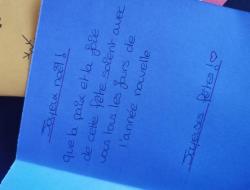 Joyeux noël !
que la paix et la joie
de cette fête soient avec
vous tous les jours de
l'année nouvelle
Joyeuses fêtes ! ♡